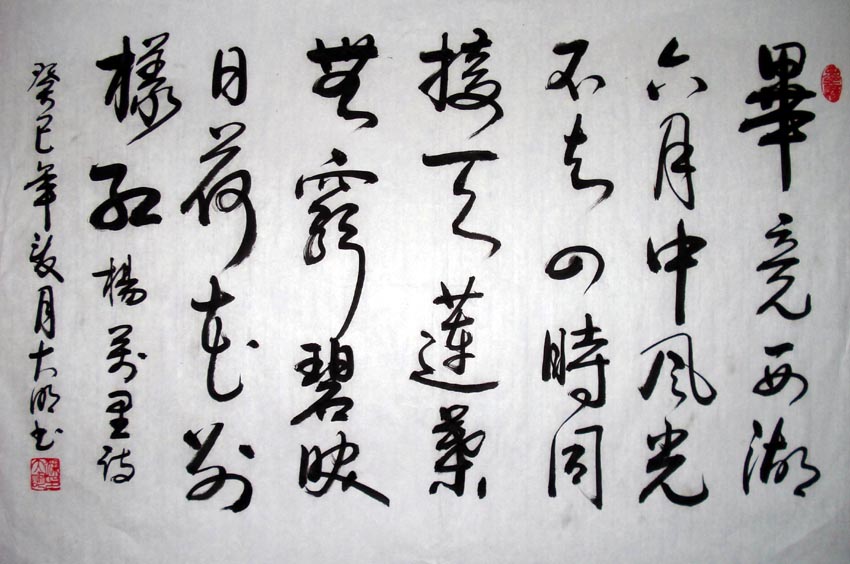 畢竟西湖
六月中風光
不與四時同
接天蓮葉
無窮碧映
日荷花別
樣紅 楊萬里詩
癸巳年夏月大明书